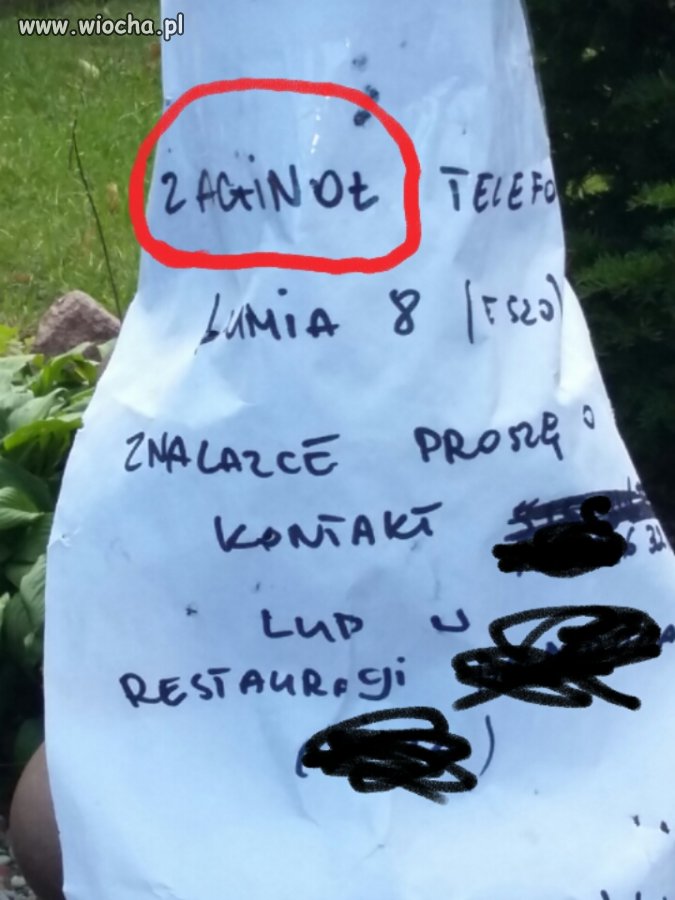 www.wiocha.pl
ZAGINOŁ TELEFO
LUMIA 8 (
ZNALAZCE PROSZĘ O
KONTAKT
LUB W
RESTAURACJI